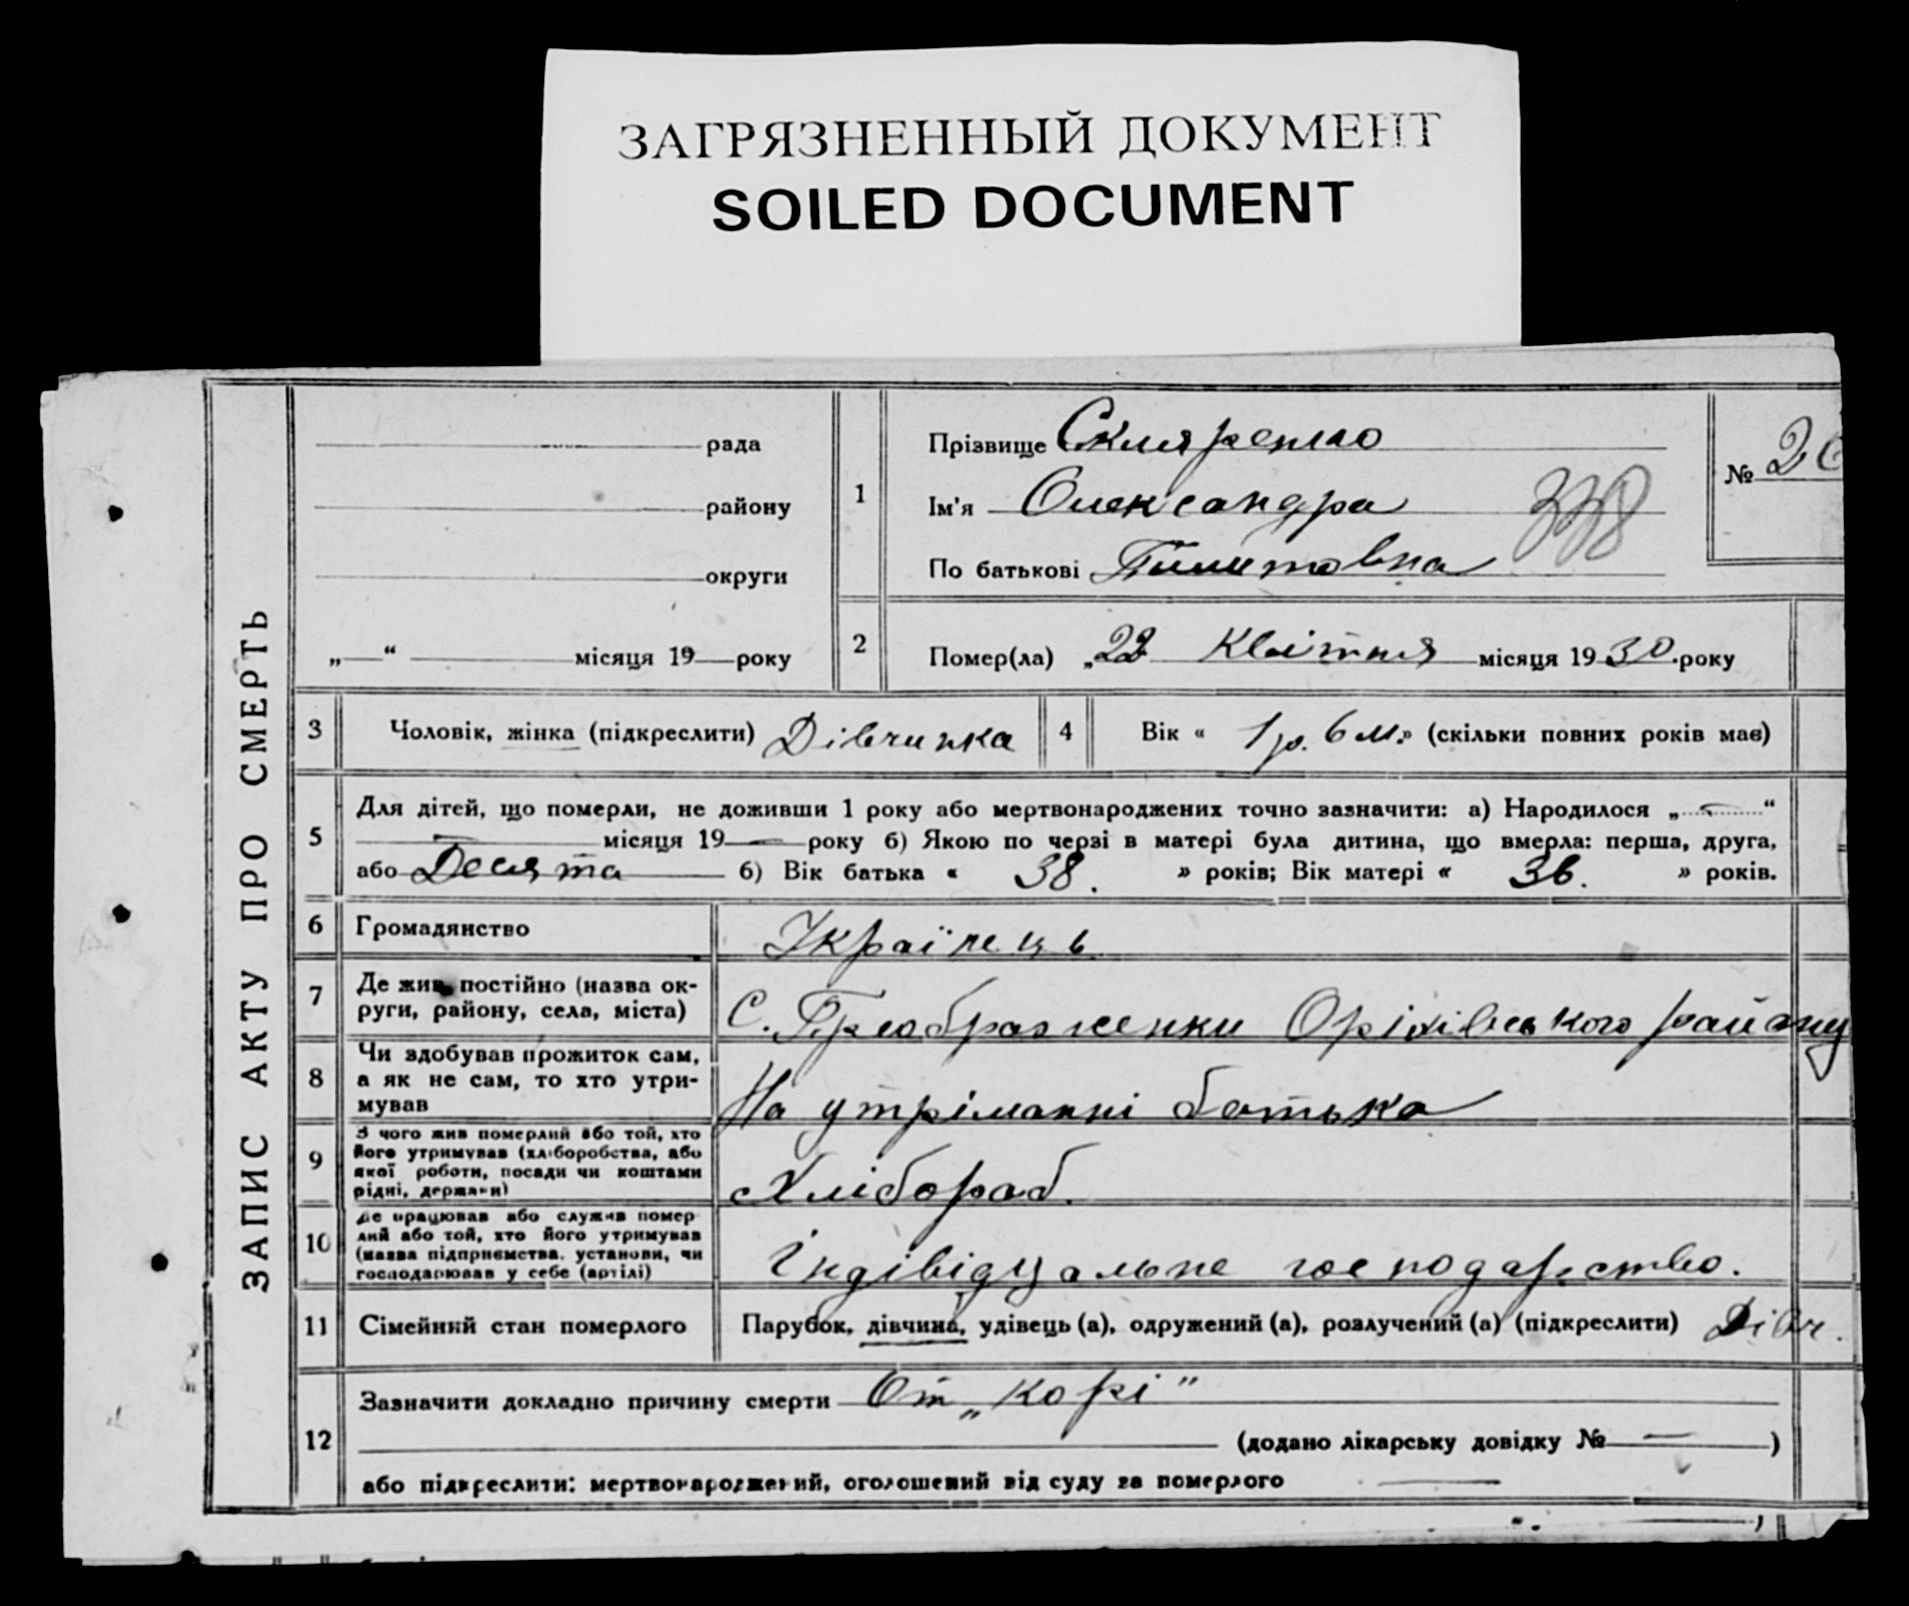 ЗАГРЯЗНЕННЫЙ ДОКУМЕНТ
SOILED DOCUMENT
ЗАПИС АКТУ ПРО СМЕРТЬ
рада
району
округи
„ “ місяця 19 року
1
Прізвище Скляренко
Ім'я Олександра
338
По батькові
№ 2
2
Помер(ла) „22 Квітня місяця 1930.року
3
Чоловік, жінка (підкреслити) Дівчинка
4
Вік « 1 р. 6 м.» (скільки повних років має)
5
Для дітей, що померли, не доживши 1 року або мертвонароджених точно зазначити: а) Народилося „ “
місяця 19 — року б) Якою по черзі в матері була дитина, що вмерла: перша, друга,
або Десята б) Вік батька « 38. » років; Вік матері « 36. » років.
6
Громадянство
Українець.
7
Де жив постійно (назва ок-
руги, району, села, міста)
С. Преображенки Оріхівського району
8
Чи здобував прожиток сам,
а як не сам, то хто утри-
мував
На утріманні батька
9
З чого жив померлий або той, хто
його утримував (хліборобства, або
якої роботи, посади чи коштами
рідні, держави)
Хлібораб.
10
Де працював або служив помер
лий або той, хто його утримував
(назва підприємства, установи, чи
господарював у себе (артілі)
Індівідуальне господарство.
11
Сімейний стан померлого
Парубок, дівчина, удівець (а), одружений (а), розлучений (а) (підкреслити) Дівч.
12
Зазначити докладно причину смерти От „корі"
(додано лікарську довідку № — )
або підкреслити: мертвонароджений, оголошений від суду за померлого —